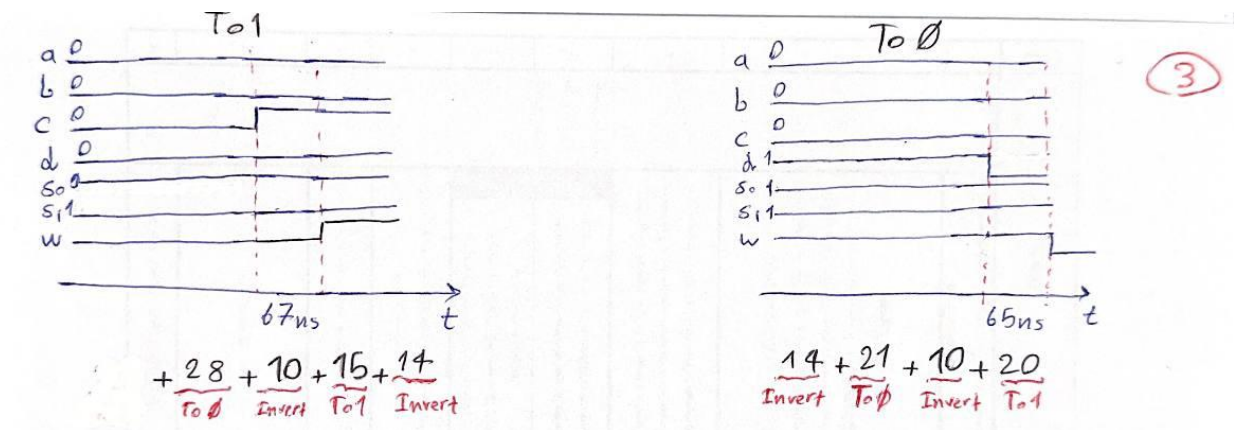 To1
a 0
b 0
c 0
d 0
S0 0
S1 1
w
67ns t
+ 28 + 10 + 15 + 14
To Ø Invert To1 Invert
To Ø
a 0
b 0
c 0
d 1
S0 1
S1 1
w
65ns t
14 + 21 + 10 + 20
Invert To Ø Invert To1
3